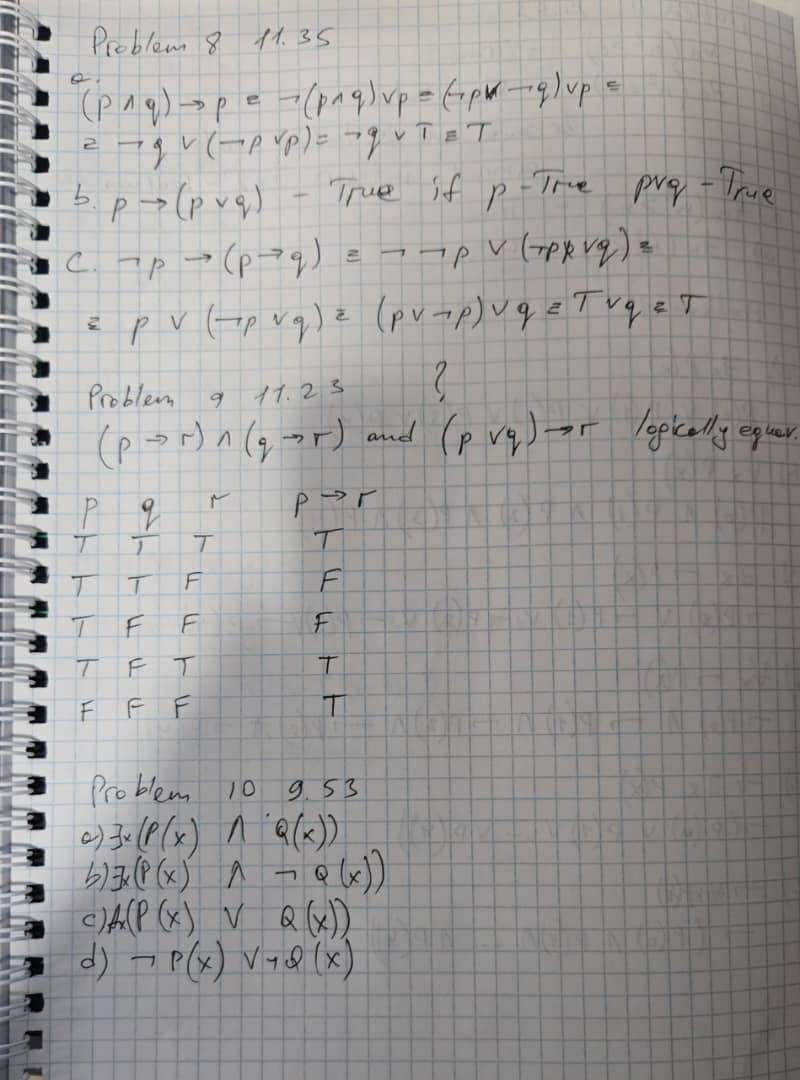 Problem 8 11.35
a.
(p ∧ q) → p ≡ ¬(p∧q)∨p ≡ (¬p∨ ¬q)∨p ≡
≡ ¬q ∨ (¬p∨p) ≡ ¬q ∨ T ≡ T
b. p → (p ∨ q) - True if p - True p∨q - True
c. ¬p → (p→q) ≡ ¬ ¬p ∨ (¬p∨q) ≡
≡ p ∨ (¬p ∨ q) ≡ (p∨¬p)∨q ≡ T∨q ≡ T
Problem 9 11.23 ?
(p → r) ∧ (q → r) and (p ∨q) → r logically equiv.
p q r p → r
T T T T
T T F F
T F F F
T F T T
F F F T
Problem 10 9.53
a) ∃x(P(x) ∧ Q(x))
b) ∃x(P(x) ∧ ¬ Q(x))
c) ∀x(P(x) ∨ Q(x))
d) ¬ P(x) ∨ ¬Q(x)